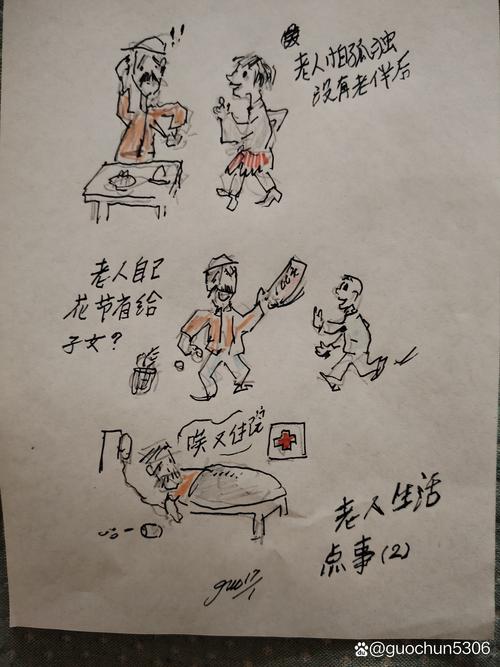 !!
老人怕孤独
没有老伴后
老人自己
花节有给
子女?
唉又住院
老人生活
点事(2)
guo 17/1
@guochun5306